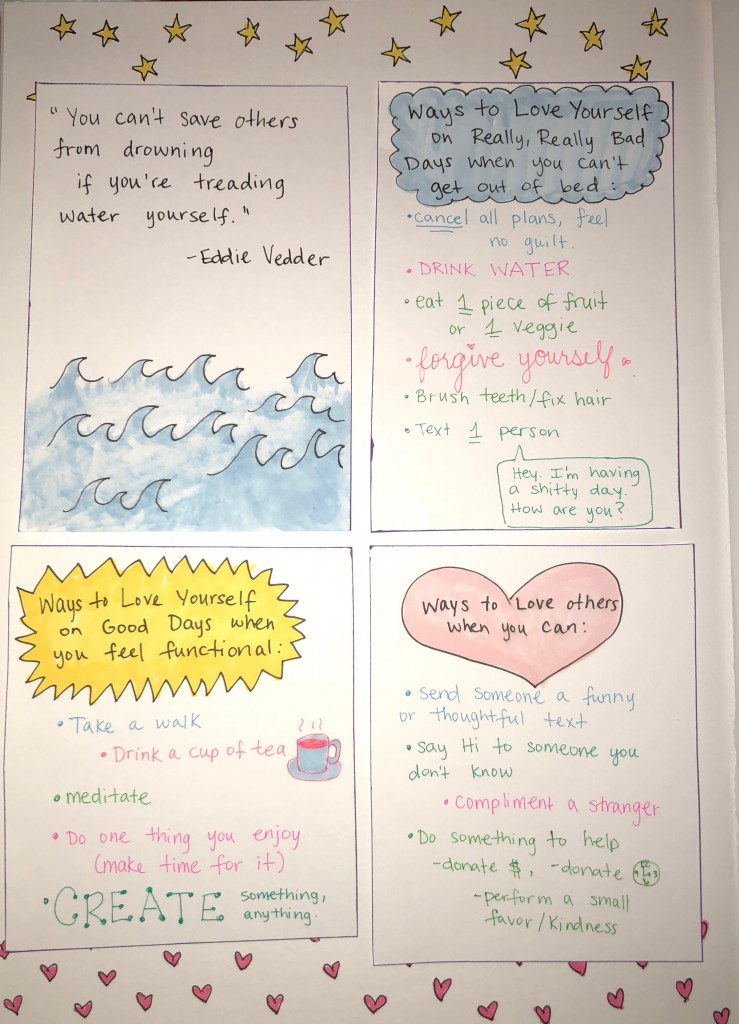 "You can't save others
from drowning
if you're treading
water yourself."
-Eddie Vedder
Ways to Love Yourself
on Really, Really Bad
Days when you can't
get out of bed:
•cancel all plans, feel
no guilt.
•DRINK WATER
•eat 1 piece of fruit
or 1 veggie
•forgive yourself.
•Brush teeth/fix hair
•Text 1 person
Hey. I'm having
a shitty day.
How are you?
Ways to Love Yourself
on Good Days when
you feel functional:
•Take a walk
•Drink a cup of tea
•meditate
•Do one thing you enjoy
(make time for it)
•CREATE something,
anything.
Ways to Love others
when you can:
•send someone a funny
or thoughtful text
•say Hi to someone you
don't know
•compliment a stranger
•Do something to help
-donate $, -donate
12
9 3
6
-perform a small
favor/kindness